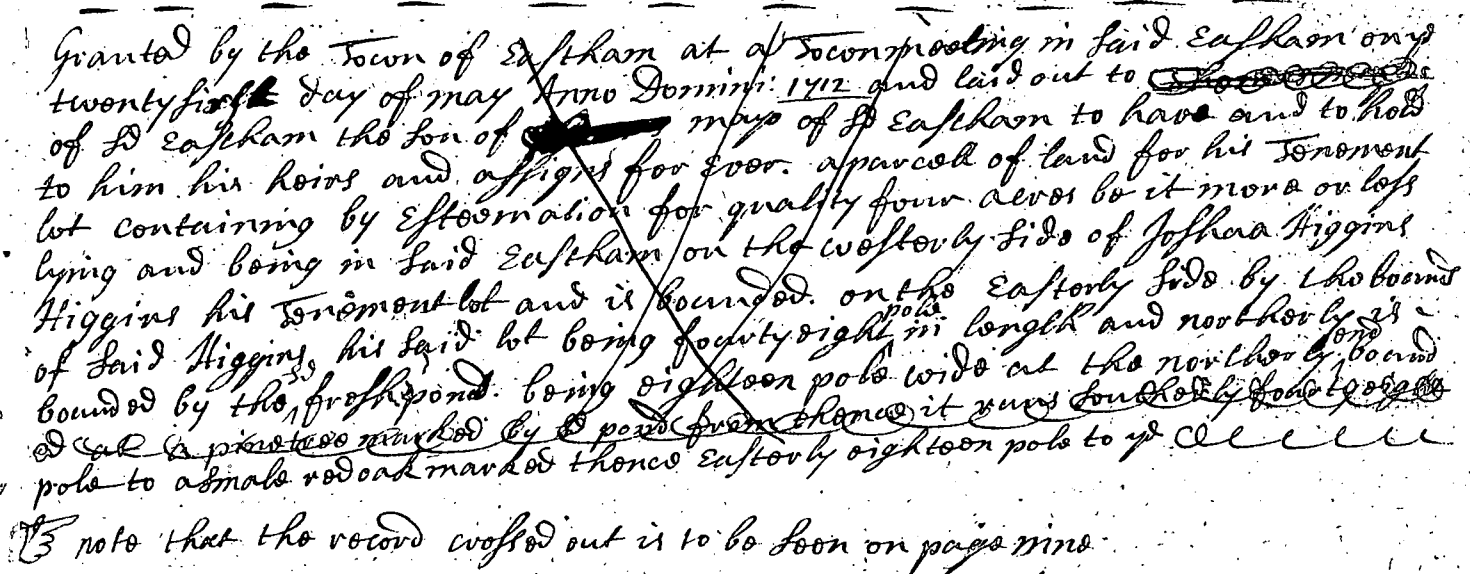 Granted by the Town of Eastham at a Townmeeting in said Eastham on ye
twenty first day of may Anno Domini: 1712 and laid out to
of sd Eastham the son of mayo of sd Eastham to have and to hold
to him his heirs and assigns for Ever. a parcell of land for his Tenement
lot containing by Esteemation for quality four acres be it more or less
lying and being in said Eastham on the westerly side of Joshua Higgins
Higgins his Tenement lot and is bounded. on the Easterly side by the bounds
of said Higgins his said lot being fourty eight pole in length and northerly is
bounded by the sd fresh pond. being eighteen pole wide at the northerly end bound
ed at a pinetree marked by sd pond from thence it runs southerly fourty eight
pole to a smale red oak marked thence Easterly eighteen pole to ye
note that the record crossed out is to be seen on page nine